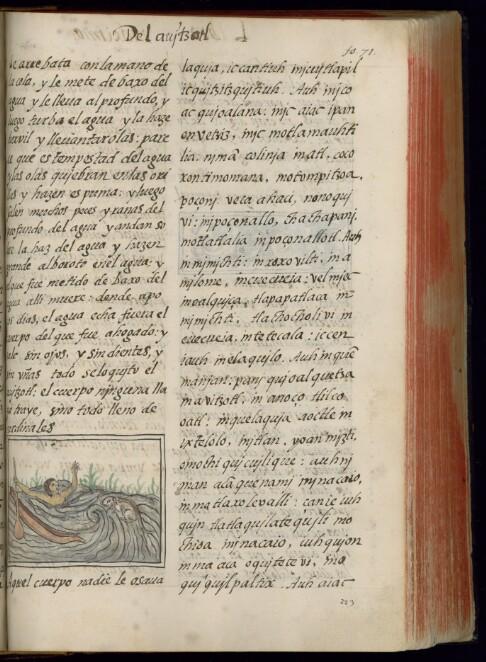 Del auitzotl
fo. 71.
le arrebata con la mano de
la cola, y le mete de baxo del
agua y le lleua al profundo, y
luego turba el agua y la haze
y lleuantar olas: pare
ce que es tempestad del agua
y las olas quiebran en las ori
llas y hazen espuma: y luego
salen muchos peces y ranas del
profundo del agua y andan so
bre la haz del agua y hazen
grande alboroto en el agua: y
el que fue metido de baxo del
agua alli muere: dende a po
cos dias, el agua echa fuera el
cuerpo del que fue ahogado: y
sale sin ojos, y sin dientes, y
sin vñas todo se lo quito el
auitzotl: el cuerpo ninguna lla
ga traye, sino todo lleno de
cardinales
Aquel cuerpo nadie le osaua
laquia, ic cantiuh injcuitlapil
ic quitzitzquitiuh. Auh injco
ac quioalana: njc aiac ipan
onvetziz, njc motlamauhti
lia: njmã colinja in atl, coxo
xontimomana, motompitzoa,
poçonj veca ahaci, nononqui
vi: in poçonallo, chachapanj
motlatlalia in poçonallotl. Auh
in mjmjchti: in xoxovilti: in a
milome, in cuecueia: vel mjec
moalquixa, tlapapatlaca in
mjmjchti, tlachocholivi in
cuecueia, mtetecala: iccen
iauh in elaquilo. Auh in quē
manjan: panj quioalquetza
in avitzotl, in anoço tlilco
oatl: in quelaquia aoctle in
ixtelolo, in jtlan, yoan injzti,
omochi quicuilique: auh inj
man aca quenami in jnacaio,
in ma tlaxolevalli: can ie iuh
quin tlatlaquilatequili mo
chioa in jnacaio, iuhquion
in ma aca oquitetevi, mo
quiquilpaltix. Auh aiac
223